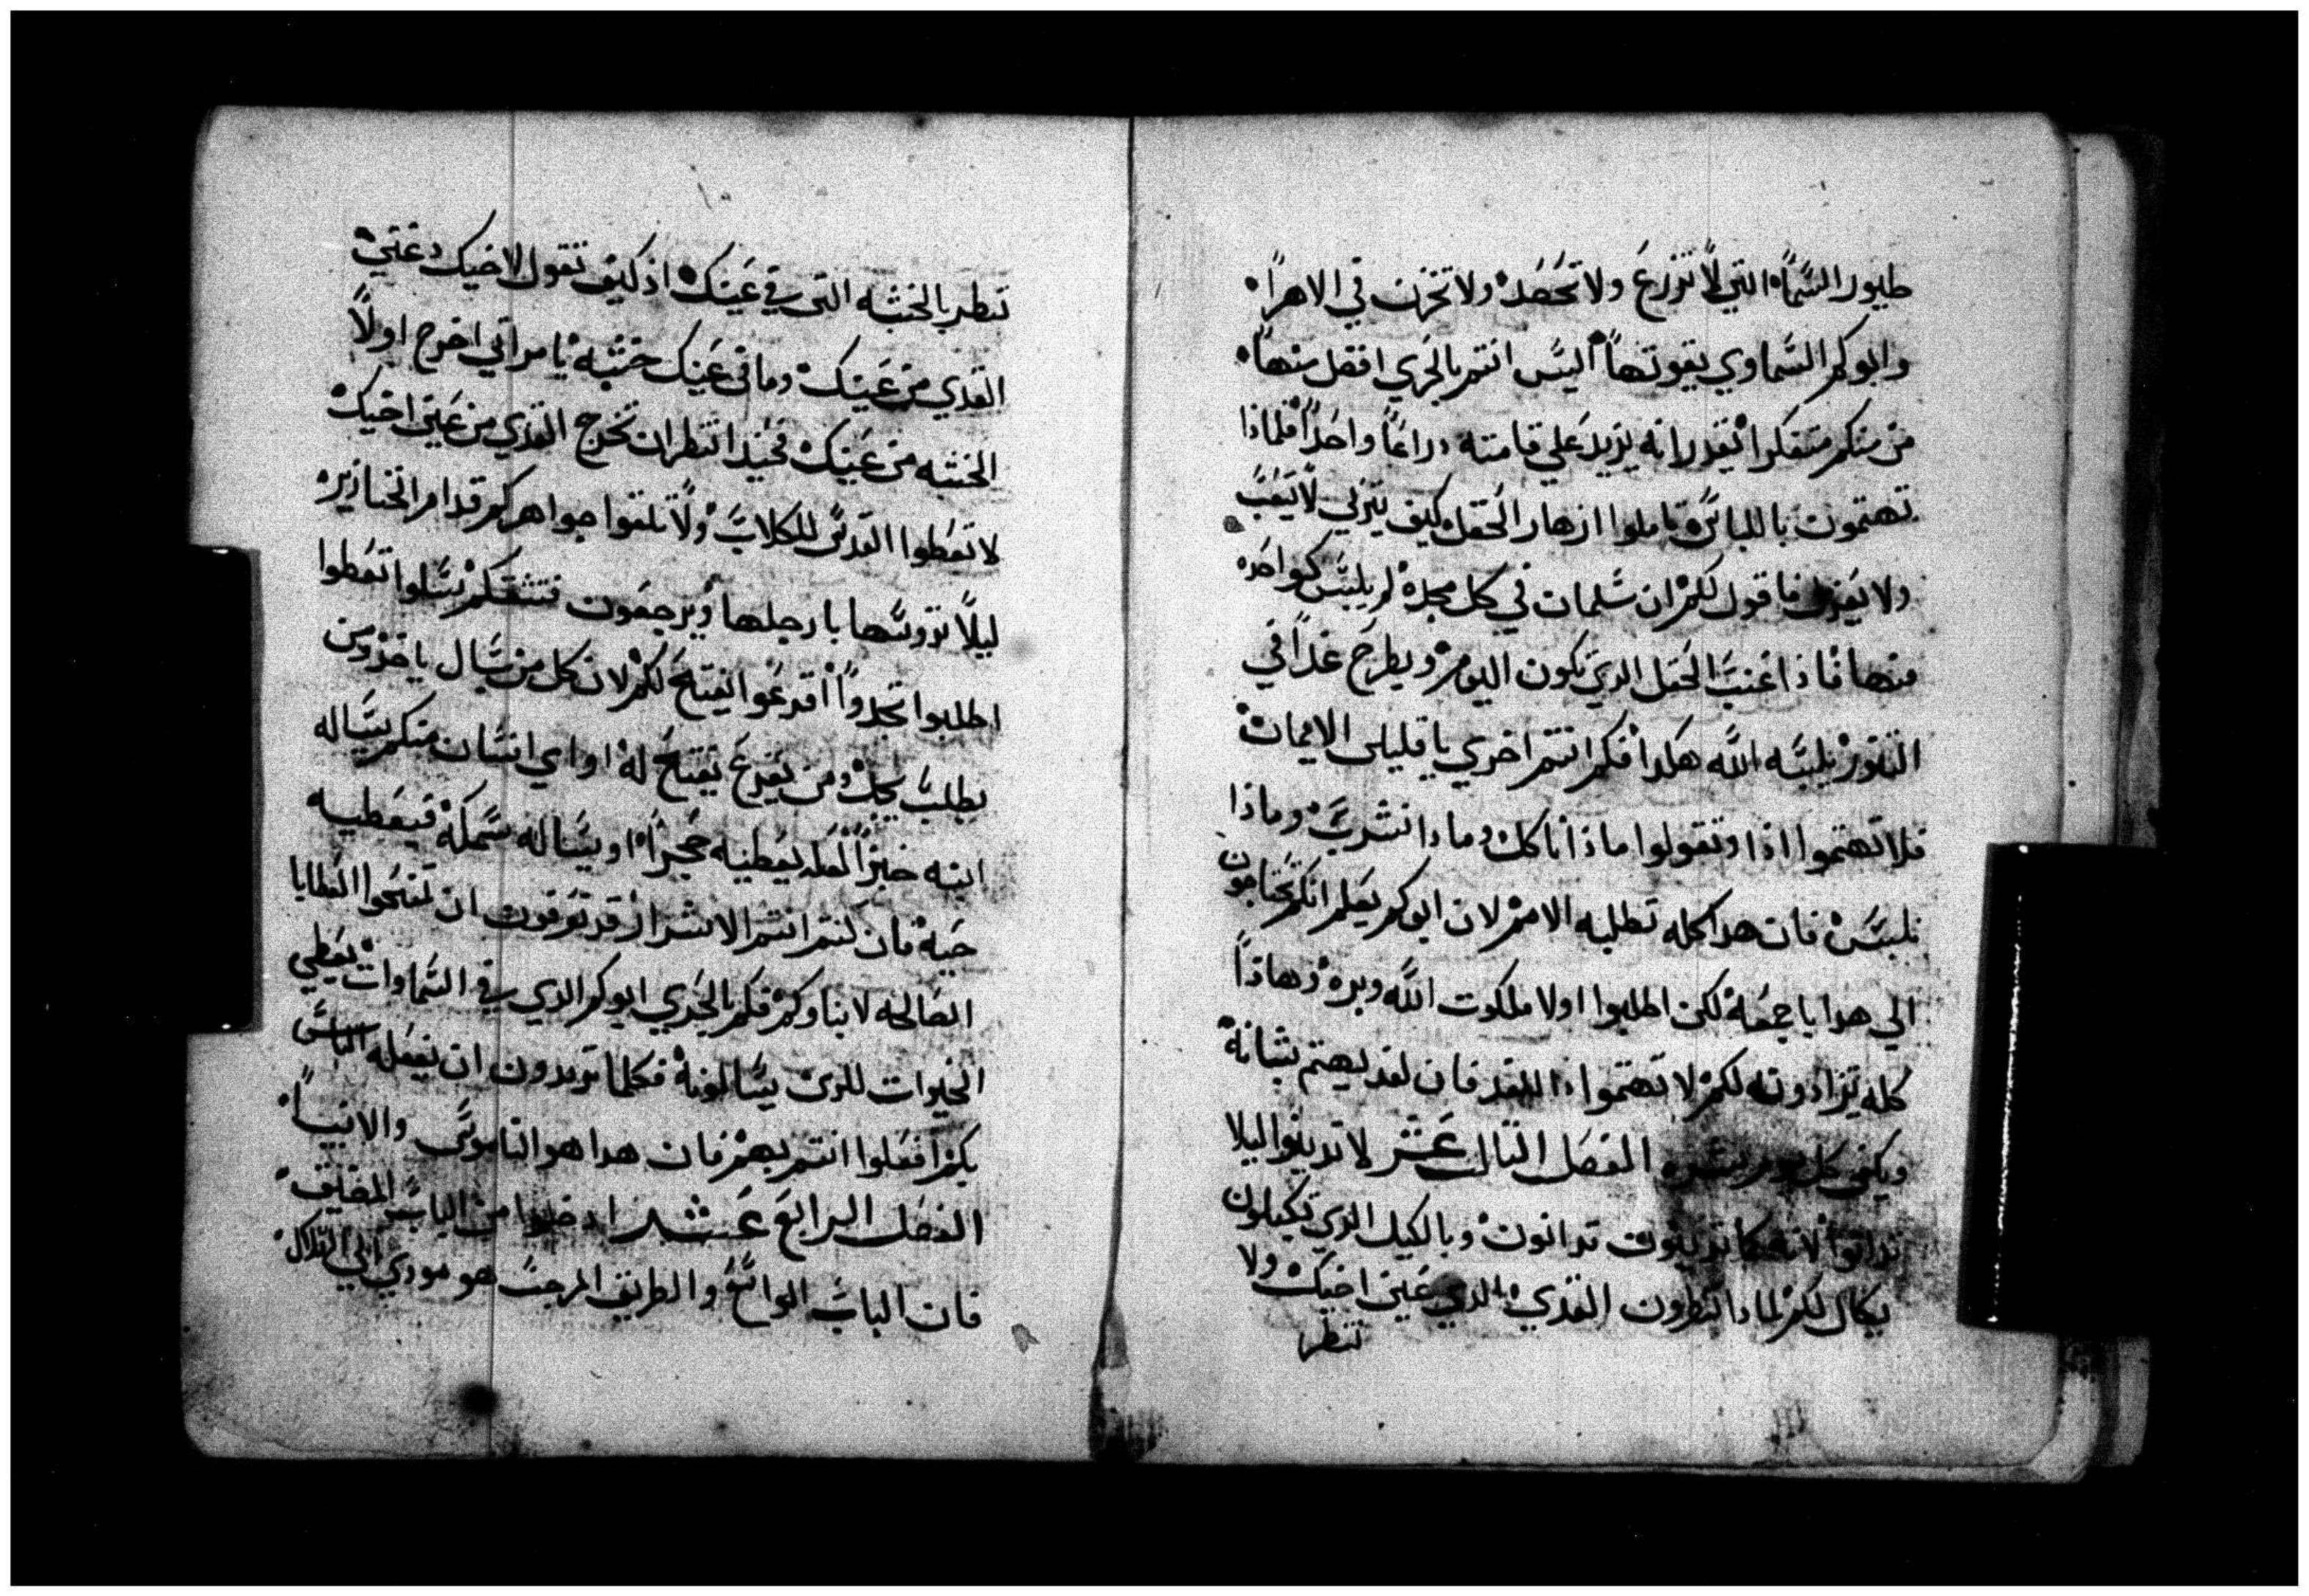 طيور السماء التي لا تزرع ولا تحصد ولا تخزن في الاهرا
وابوكم السماوي يقوتها اليس انتم بالحري افضل منها
من منكم متفكرا يقدر انه يزيد علي قامته دراعا واحدا فلماذا
تهتمون باللباس تاملوا ازهار الحقل كيف يتربي لا يتعب
ولا يغزل فاقول لكم ان سليمان في كل مجده لم يلبس كواحده
منها فاذا عنب الحقل الدي يكون اليوم ويطرح غدا في
التنور يلبسه الله هكدا فكم انتم احري يا قليلي الايمان
فلا تهتموا اذا وتقولوا ماذا ناكل وماذا نشرب وماذا
نلبس فان هدا كله تطلبه الامم لان ابوكم يعلم انكم تحتاجون
الي هدا باجمعه لكن اطلبوا اولا ملكوت الله وبره وهاذا
كله تزادونه لكم لا تهتموا للغد فان لغد يهتم بشانه
ويكفي كل يوم بشره الفصل التالت عشر لا تدينوا ليلا
تدانوا لانه كما تدينون تدانون وبالكيل الدي تكيلون
يكال لكم لمادا تنظرون القدي الدي عين اخيك ولا
تنظر
تنظر بالخشبه التي في عينك اذ كيف تقول لاخيك دعني
القدي من عينك وها في عينك خشبه يا مرائي اخرج اولا
الخشبه من عينك فحينيد انتظر ان تخرج القدي من عين اخيك
لا تعطوا القدس للكلاب ولا تلقوا جواهركم قدام الخنازير
ليلا تدوسها بارجلها ويرجعون فتشقكم سلوا تعطوا
اطلبوا تجدوا اقرعوا يفتح لكم لان كل من سال ياخذ ومن
يطلب يجد ومن يقرع يفتح له او اي انسان منكم يساله
ابنه خبزا لعله يعطيه حجرا او يساله سمكة فيعطيه
حية فان كنتم انتم الاشرار قد تعرفون ان تمنحوا العطايا
الصالحه لابناوكم فكم بالحري ابوكم الدي في السماوات يعطي
الخيرات للدين يسالونه فكلما تريدون ان يفعله الناس
بكم افعلوا انتم بهم فان هدا هو الناموس والانبيا
الفصل الرابع عشر ادخلوا من الباب المضيق
فان الباب الواسع والطريق المرحب هو مودي الي الهلاك